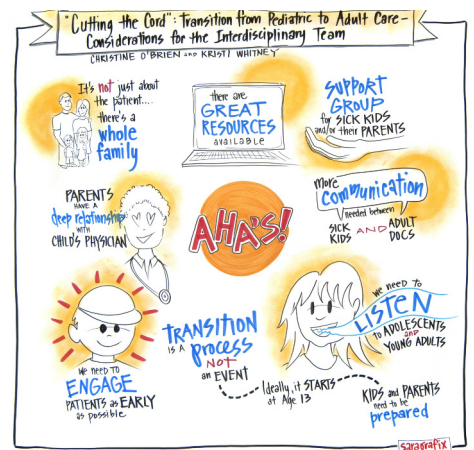 "Cutting the Cord": Transition from Pediatric to Adult Care -
Considerations for the Interdisciplinary Team
CHRISTINE O'BRIEN and KRISTI WHITNEY
It's not just about
the patient....
there's a
whole
family
there are
GREAT
RESOURCES
available
SUPPORT
GROUP
for SICK KIDS
and/or their PARENTS
PARENTS
HAVE A
deep relationship
WITH
CHILD'S PHYSICIAN
AHA'S!
more
communication
needed between
SICK KIDS AND ADULT DOCS
we need to
ENGAGE
PATIENTS as EARLY
as possible
TRANSITION
IS A process
NOT
an EVENT
Ideally, it STARTS
at Age 13
we need to
LISTEN
to ADOLESCENTS
and
YOUNG ADULTS
KIDS and PARENTS
need to be
prepared
saragrafix